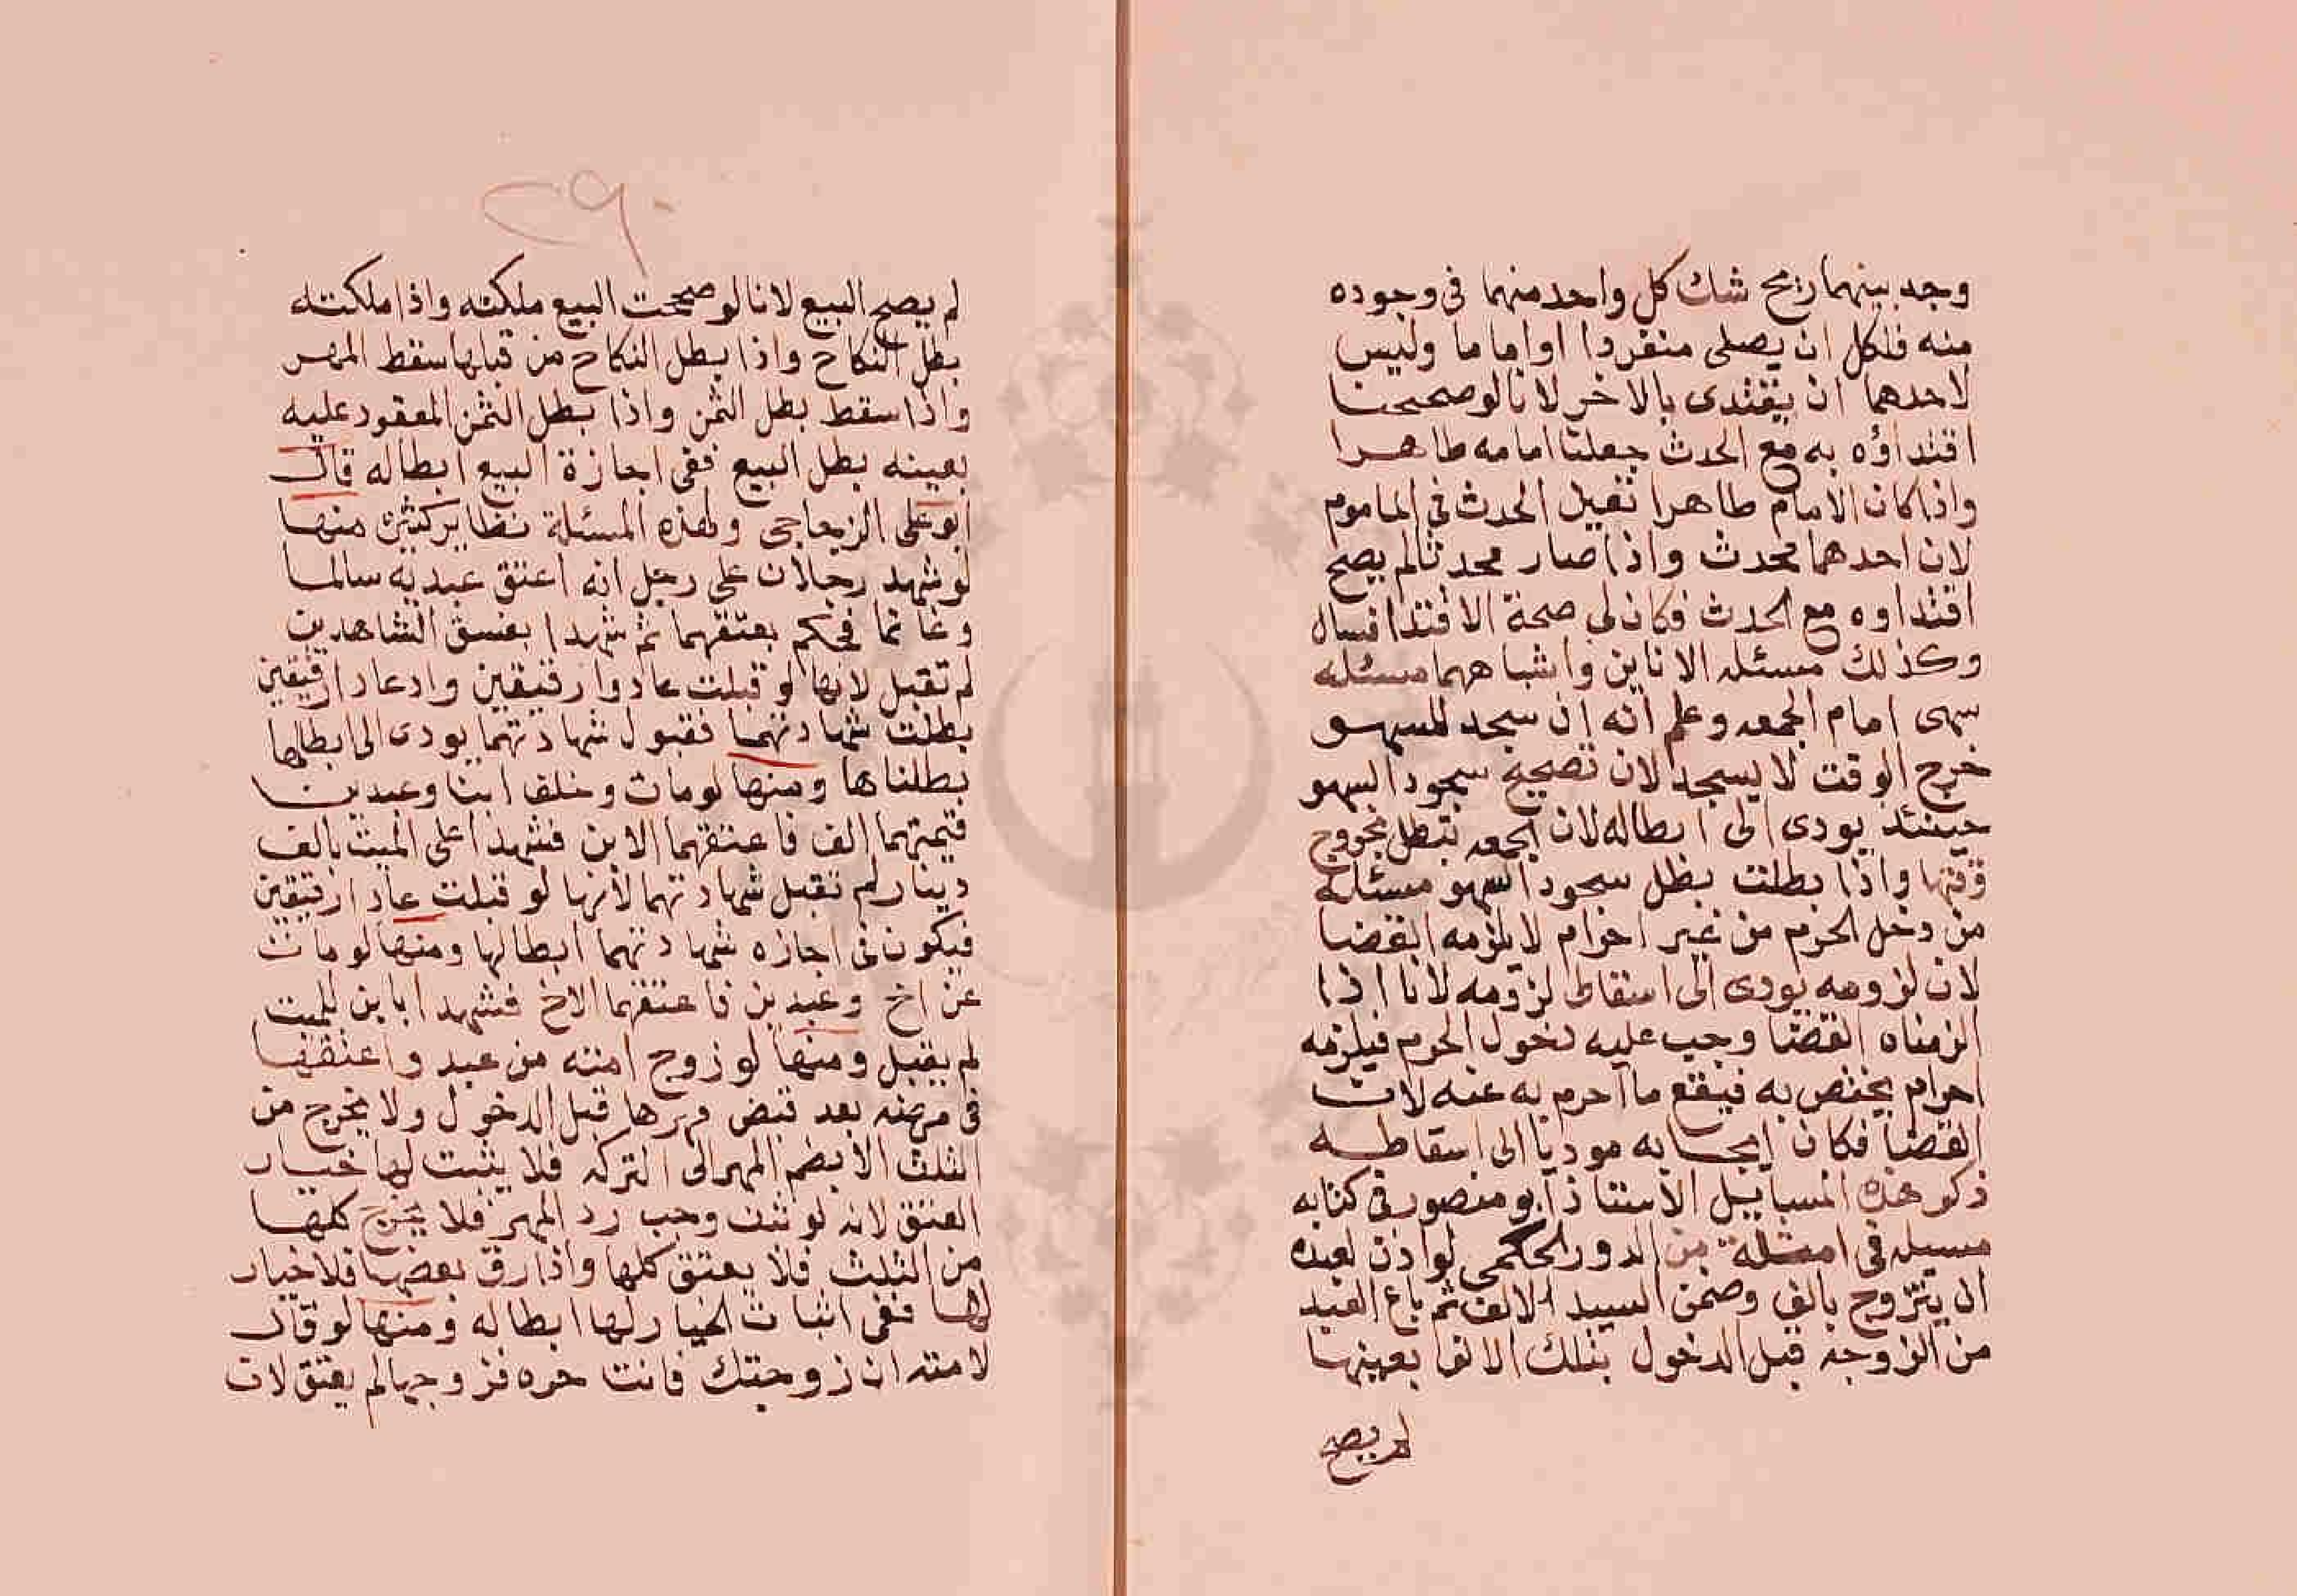 وجد بينهما ريح شك كل واحد منهما في وجوده
منه فلكل ان يصلى منفردا او اماما وليس
لاحدهما ان يقتدى بالاخر لانا لو صححنا
اقتداؤه به مع الحدث جعلنا امامه طاهرا
واذا كان الامام طاهرا تعين الحدث في الماموم
لان احدهما محدث واذا صار محدثا لم يصح
اقتداوه مع الحدث فكان لى صحة الاقتدا فساده
وكذلك مسئله الاناين واشباههما مسئله
سهى امام الجمعه وعلم انه ان سجد للسهو
خرج الوقت لا يسجد لان تصحيح سجود السهو
حينئذ يودى الى ابطاله لان الجمعه تبطل بخروج
وقتها واذا بطلت بطل سجود السهو مسئله
من دخل الحرم من غير احرام لا يلزمه القضا
لان لزومه يودى الى اسقاط لزومه لانا اذا
الزمناه القضا وجب عليه دخول الحرم فيلزمه
احرام يختص به فيقع ما احرم به عنه لان
القضا فكان ايجابه موديا الى اسقاطه
ذكر هذه المسايل الاستاذ ابو منصور في كتابه
مسيله في امثلة من الدور الحكمى لو اذن لعبده
ان يتزوج بالف وضمن السيد الالف ثم باع العبد
من الزوجه قبل الدخول بتلك الالف بعينها
لم يصح
٢٩٠
لم يصح البيع لانا لو صححت البيع ملكته واذا ملكته
بطل النكاح واذا بطل النكاح من قبلها سقط المهر
واذا سقط بطل الثمن واذا بطل الثمن المعقود عليه
بعينه بطل البيع ففى اجازة البيع ابطاله قال
ابو على الزجاجى ولهذه المسئلة نظاير كثيره منها
لو شهد رجلان على رجل انه اعتق عبديه سالما
وغانما فحكم بعتقهما ثم شهدا بفسق الشاهدين
لم تقبل لانها لو قبلت عادوا رقيقين واد عادا رقيقين
بطلت شهادتهما فقبول شهادتهما يودى الى ابطالها
بطلناها ومنها لو مات وخلف ابنا وعبدين
قيمتهما الف فاعتقهما الابن فشهدا على الميت بالف
دينار لم تقبل شهادتهما لانها لو قبلت عادا رقيقين
فيكون في اجازه شهادتهما ابطالها ومنها لو مات
عن اخ وعبدين فاعتقهما الاخ فشهدا بابن للميت
لم يقبل ومنها لو زوج امته من عبد واعتقها
في مرضه بعد قبض مهرها قبل الدخول ولا يخرج من
الثلث الا بضم المهر الى التركه فلا يثبت لها خيار
العتق لانه لو ثبت وجب رد المهر فلا يخرج كلها
من الثلث فلا يعتق كلها واذا رق بعضها فلا خيار
لها ففى اثبات الخيار لها ابطاله ومنها لو قال
لامته ان زوجتك فانت حره فزوجها لم يعتق لان